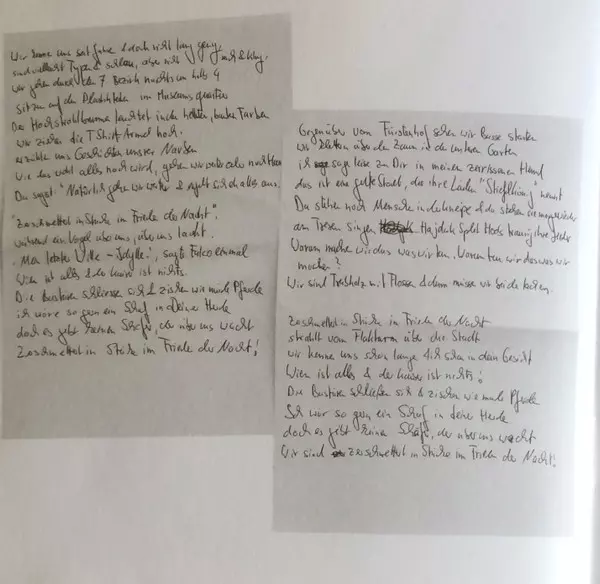 Wir kennen uns seit Jahren & doch nicht lang genug
sind vielleicht Typen & schlau, aber nicht reich & klug.
wir gehen durch den 7. Bezirk nachts um halb 4
sitzen auf den Plastikteilen im Museumsquartier
Der Hochstrahlbrunnen leuchtet in den hellsten, bunten Farben
wir ziehen die T-Shirt-Ärmel hoch.
erzählen uns Geschichten unserer Narben
Wie das wohl alles noch wird, gehen wir weiter oder nach Haus
Du sagst: "Natürlich gehen wir weiter & es geht sich alles aus."
"Zerschmettert in Stücke im Frieden der Nacht".
während ein Vogel über uns, über uns lacht.
"Mein letzter Wille – Idylle", sagte Falco einmal
Wien ist alles & der Kaiser ist nichts.
Die Bustüren schliessen sich & zischen wie müde Pferde
ich wäre so gern ein Schaf in Deiner Herde
doch es gibt keinen Schäfer, der über uns wacht
Zerschmettert in Stücke im Frieden der Nacht!
Gegenüber vom Fürstenhof sehen wir Busse starten
wir klettern über den Zaun in den unteren Garten
ich sage leise zu Dir in meinem zerrissenen Hemd
das ist eine gute Stadt, die ihre Laden "Stiefkönig" nennt
Du stehen noch Menschen in der Kneipe & da stehen sie morgen wieder
am Tresen singen Hajduk Split Mods traurig ihre Lieder
Warum machen wir das was wir tun. Warum tun wir das was wir
machen?
Wir sind Treibholz mit Flossen & dann müssen wir beide lachen.
Zerschmettert in Stücke im Frieden der Nacht
strahlt vom Flakturm über die Stadt
wir kennen uns schon lange & ich seh in dein Gesicht
Wien ist alles & der Kaiser ist nichts!
Die Bustüren schließen sich & zischen wie müde Pferde
Ich wär so gern ein Schaf in deiner Herde
doch es gibt keinen Schäfer, der über uns wacht
Wir sind zerschmettert in Stücke im Frieden der Nacht!